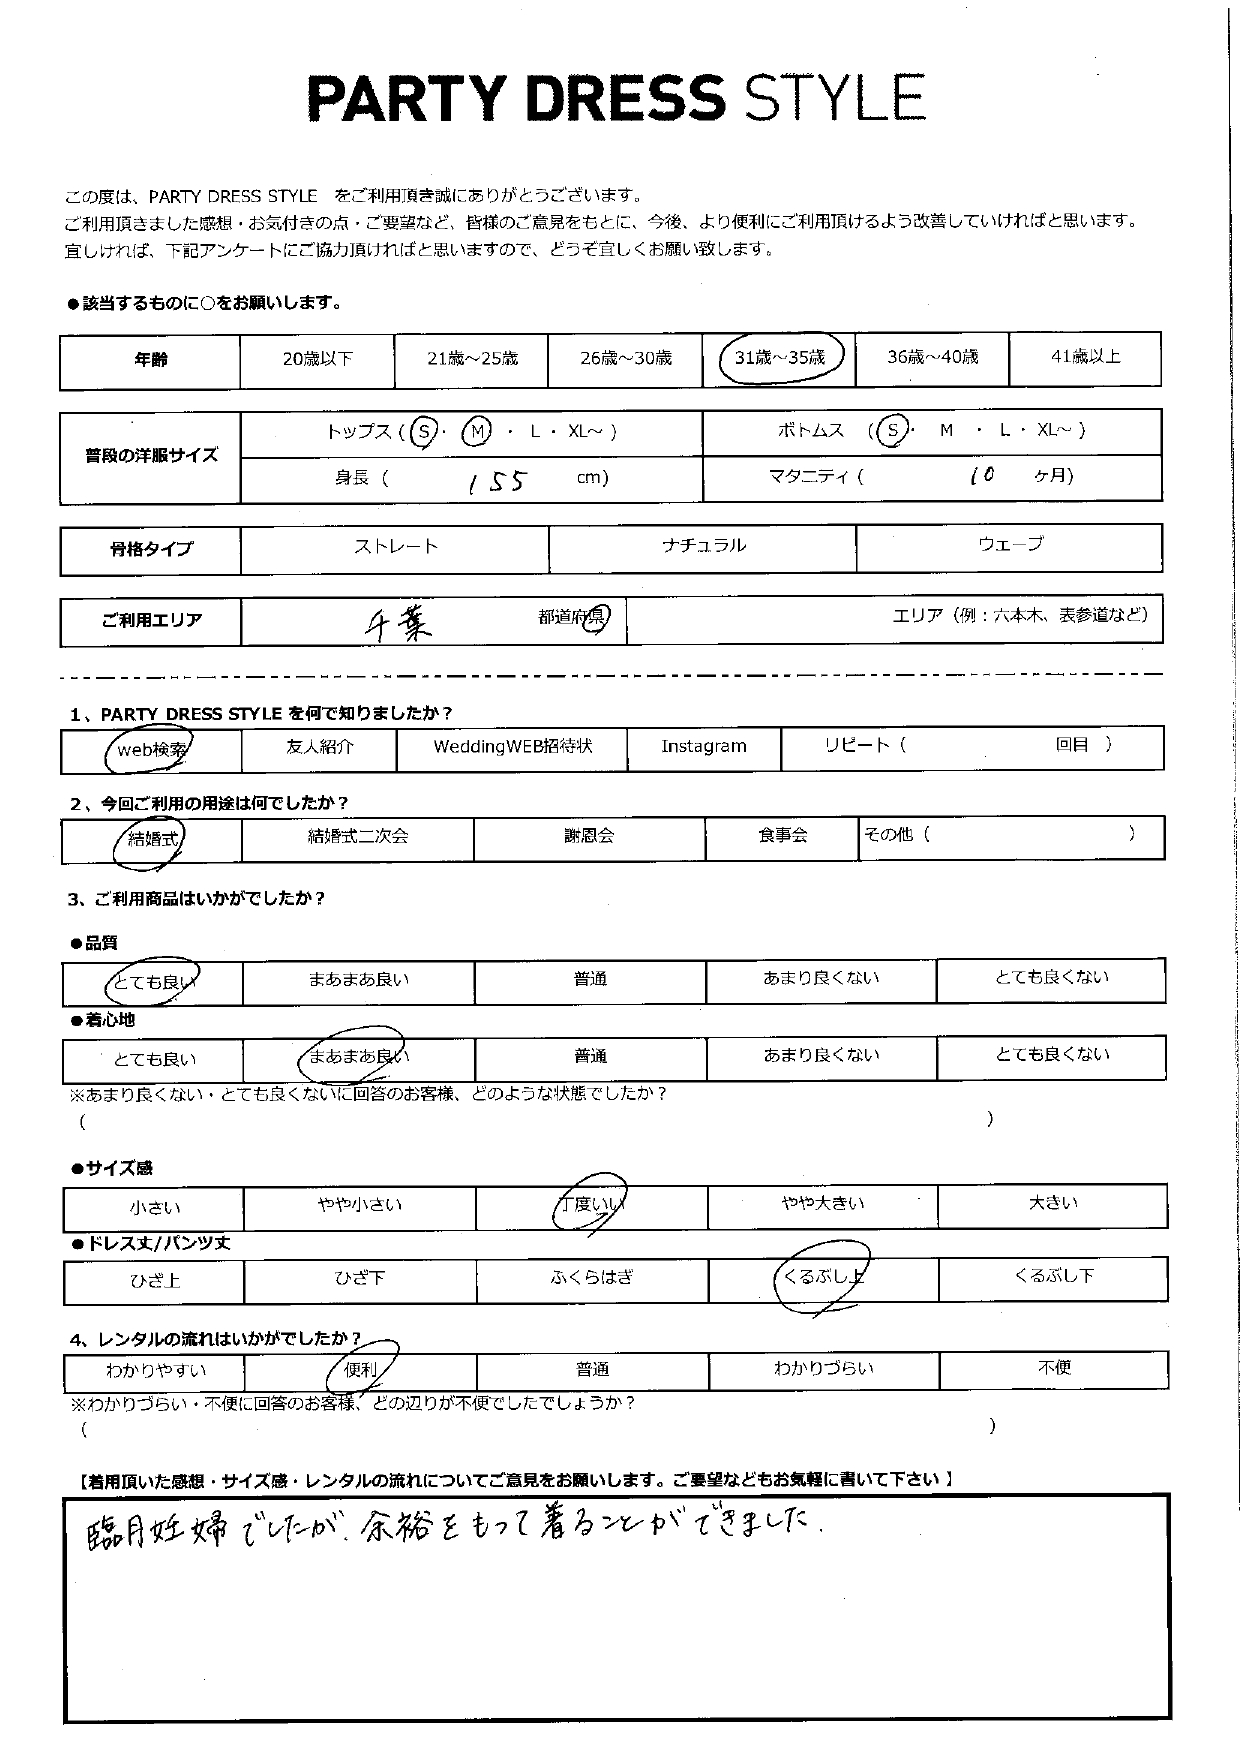 PARTY DRESS STYLE
この度は、PARTY DRESS STYLE をご利用頂き誠にありがとうございます。
ご利用頂きました感想・お気付きの点・ご要望など、皆様のご意見をもとに、今後、より便利にご利用頂けるよう改善していければと思います。
宜しければ、下記アンケートにご協力頂ければと思いますので、どうぞ宜しくお願い致します。
●該当するものに○をお願いします。
年齢 20歳以下 21歳～25歳 26歳～30歳 31歳～35歳 36歳～40歳 41歳以上
普段の洋服サイズ
トップス (S・ M ・ L・ XL～ ) ボトムス (S・ M ・ L・ XL～ )
身長 ( 155 cm) マタニティ ( 10 ヶ月)
骨格タイプ ストレート ナチュラル ウェーブ
ご利用エリア 千葉 都道府県 エリア（例：六本木、表参道など）
1、PARTY DRESS STYLE を何で知りましたか？
web検索 友人紹介 WeddingWEB招待状 Instagram リピート（ 回目 ）
2、今回ご利用の用途は何でしたか？
結婚式 結婚式二次会 謝恩会 食事会 その他（ ）
3、ご利用商品はいかがでしたか？
●品質
とても良い まあまあ良い 普通 あまり良くない とても良くない
●着心地
とても良い まあまあ良い 普通 あまり良くない とても良くない
※あまり良くない・とても良くないに回答のお客様、どのような状態でしたか？
（ ）
●サイズ感
小さい やや小さい 丁度いい やや大きい 大きい
●ドレス丈/パンツ丈
ひざ上 ひざ下 ふくらはぎ くるぶし上 くるぶし下
4、レンタルの流れはいかがでしたか？
わかりやすい 便利 普通 わかりづらい 不便
※わかりづらい・不便に回答のお客様、どの辺りが不便でしたでしょうか？
（ ）
【着用頂いた感想・サイズ感・レンタルの流れについてご意見をお願いします。ご要望などもお気軽に書いて下さい】
臨月妊婦でしたが、余裕をもって着ることができました.